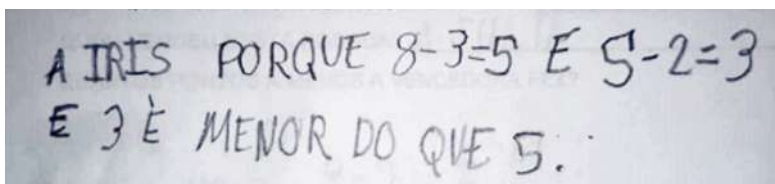 A IRIS PORQUE 8-3=5 E 5-2=3
E 3 È MENOR DO QUE 5.